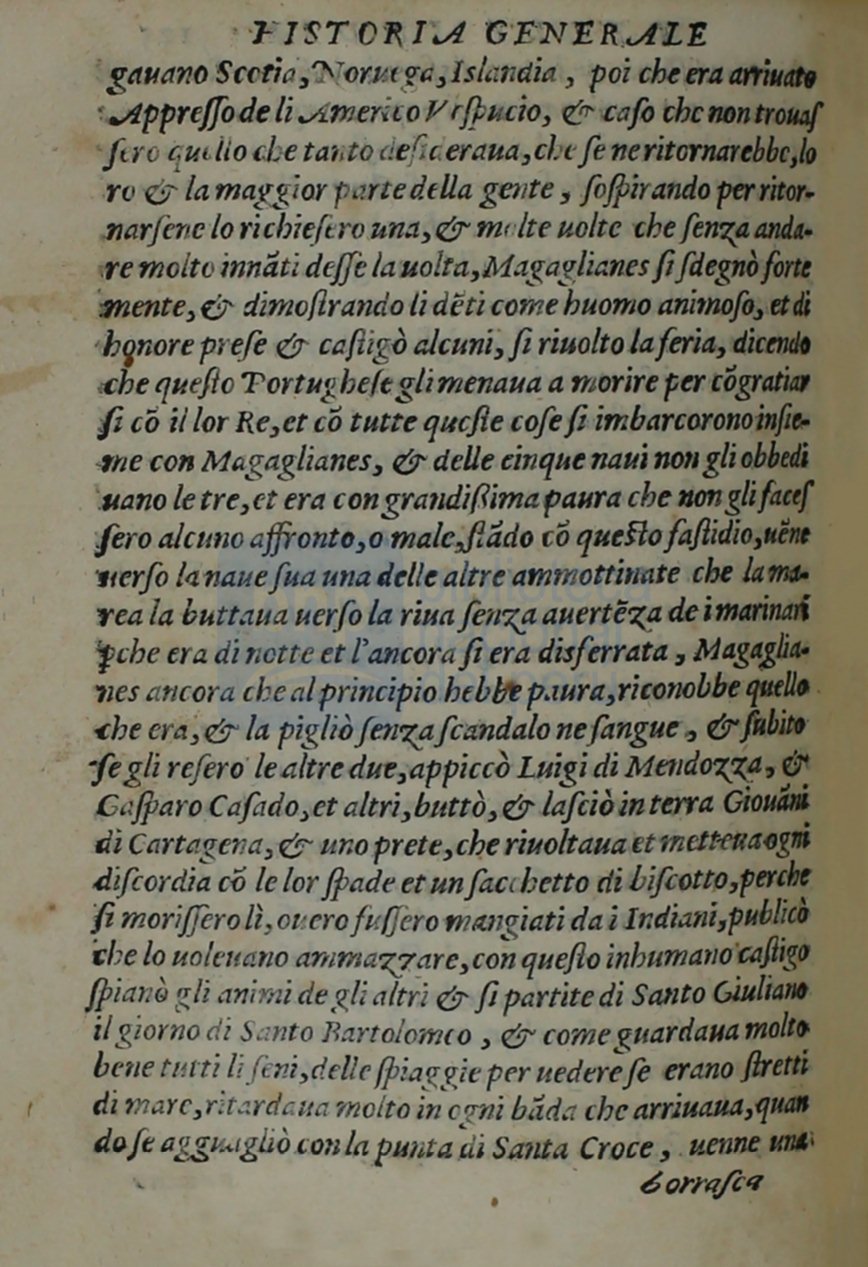 HISTORIA GENERALE
gauano Scotia, Noruega, Islandia, poi che era arriuato
Appresso de li Americo Vespucio, & caso che non trouas
sero quello che tanto desideraua, che se ne ritornarebbe, lo
ro & la maggior parte della gente, sospirando per ritor-
narsene lo richiesero una, & molte uolte che senza anda-
re molto innãti desse la uolta, Magaglianes si sdegnò forte
mente, & dimostrando li dẽti come huomo animoso, et di
honore prese & castigò alcuni, si riuolto la feria, dicendo
che questo Portughese gli menaua a morire per cõgratiar
si cõ il lor Re, et cõ tutte queste cose si imbarcorono insie-
me con Magaglianes, & delle cinque naui non gli obbedi
uano le tre, et era con grandissima paura che non gli faces
sero alcuno affronto, o male, stãdo cõ questo fastidio, uẽne
uerso la naue sua una delle altre ammottinate che la ma-
rea la buttaua uerso la riua senza auertẽza de i marinari
ꝑche era di notte et l'ancora si era disferrata, Magaglia-
nes ancora che al principio hebbe paura, riconobbe quello
che era, & la pigliò senza scandalo ne sangue, & subito
se gli resero le altre due, appiccò Luigi di Mendozza, &
Gasparo Casado, et altri, buttò, & lasciò in terra Giouãni
di Cartagena, & uno prete, che riuoltaua et metteua ogni
discordia cõ le lor spade et un sacchetto di biscotto, perche
si morissero lì, ouero fussero mangiati da i Indiani, publicò
che lo uoleuano ammazzare, con questo inhumano castigo
spianò gli animi de gli altri & si partite di Santo Giuliano
il giorno di Santo Bartolomeo, & come guardaua molto
bene tutti li seni, delle spiaggie per uedere se erano stretti
di mare, ritardaua molto in ogni bãda che arriuaua, quan
do se agguagliò con la punta di Santa Croce, uenne una
borrasca